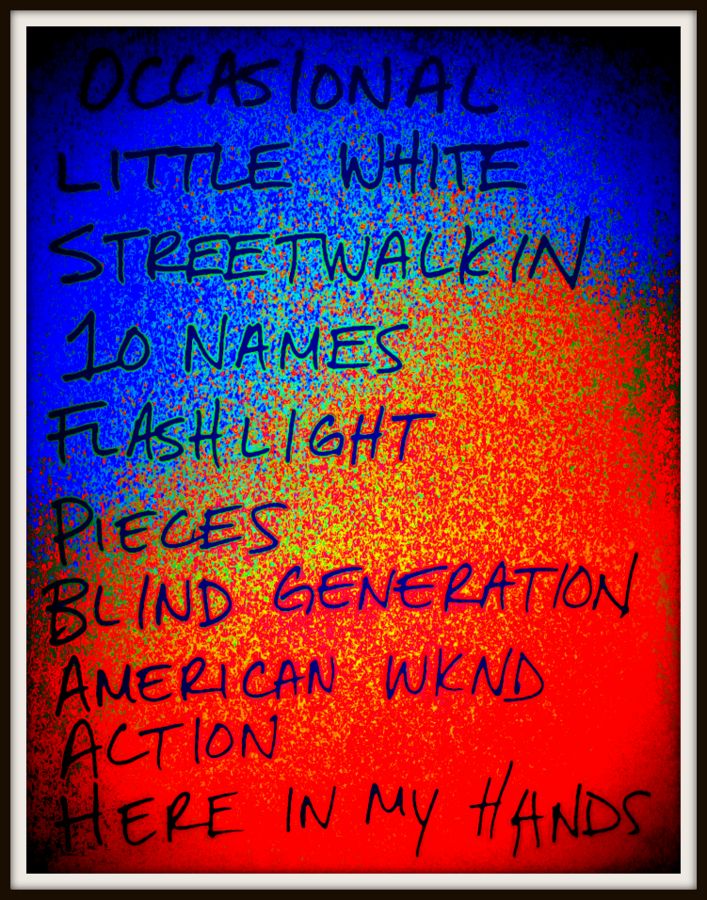 OCCASIONAL
LITTLE WHITE
STREETWALKIN
10 NAMES
FLASHLIGHT
PIECES
BLIND GENERATION
AMERICAN WKND
ACTION
HERE IN MY HANDS